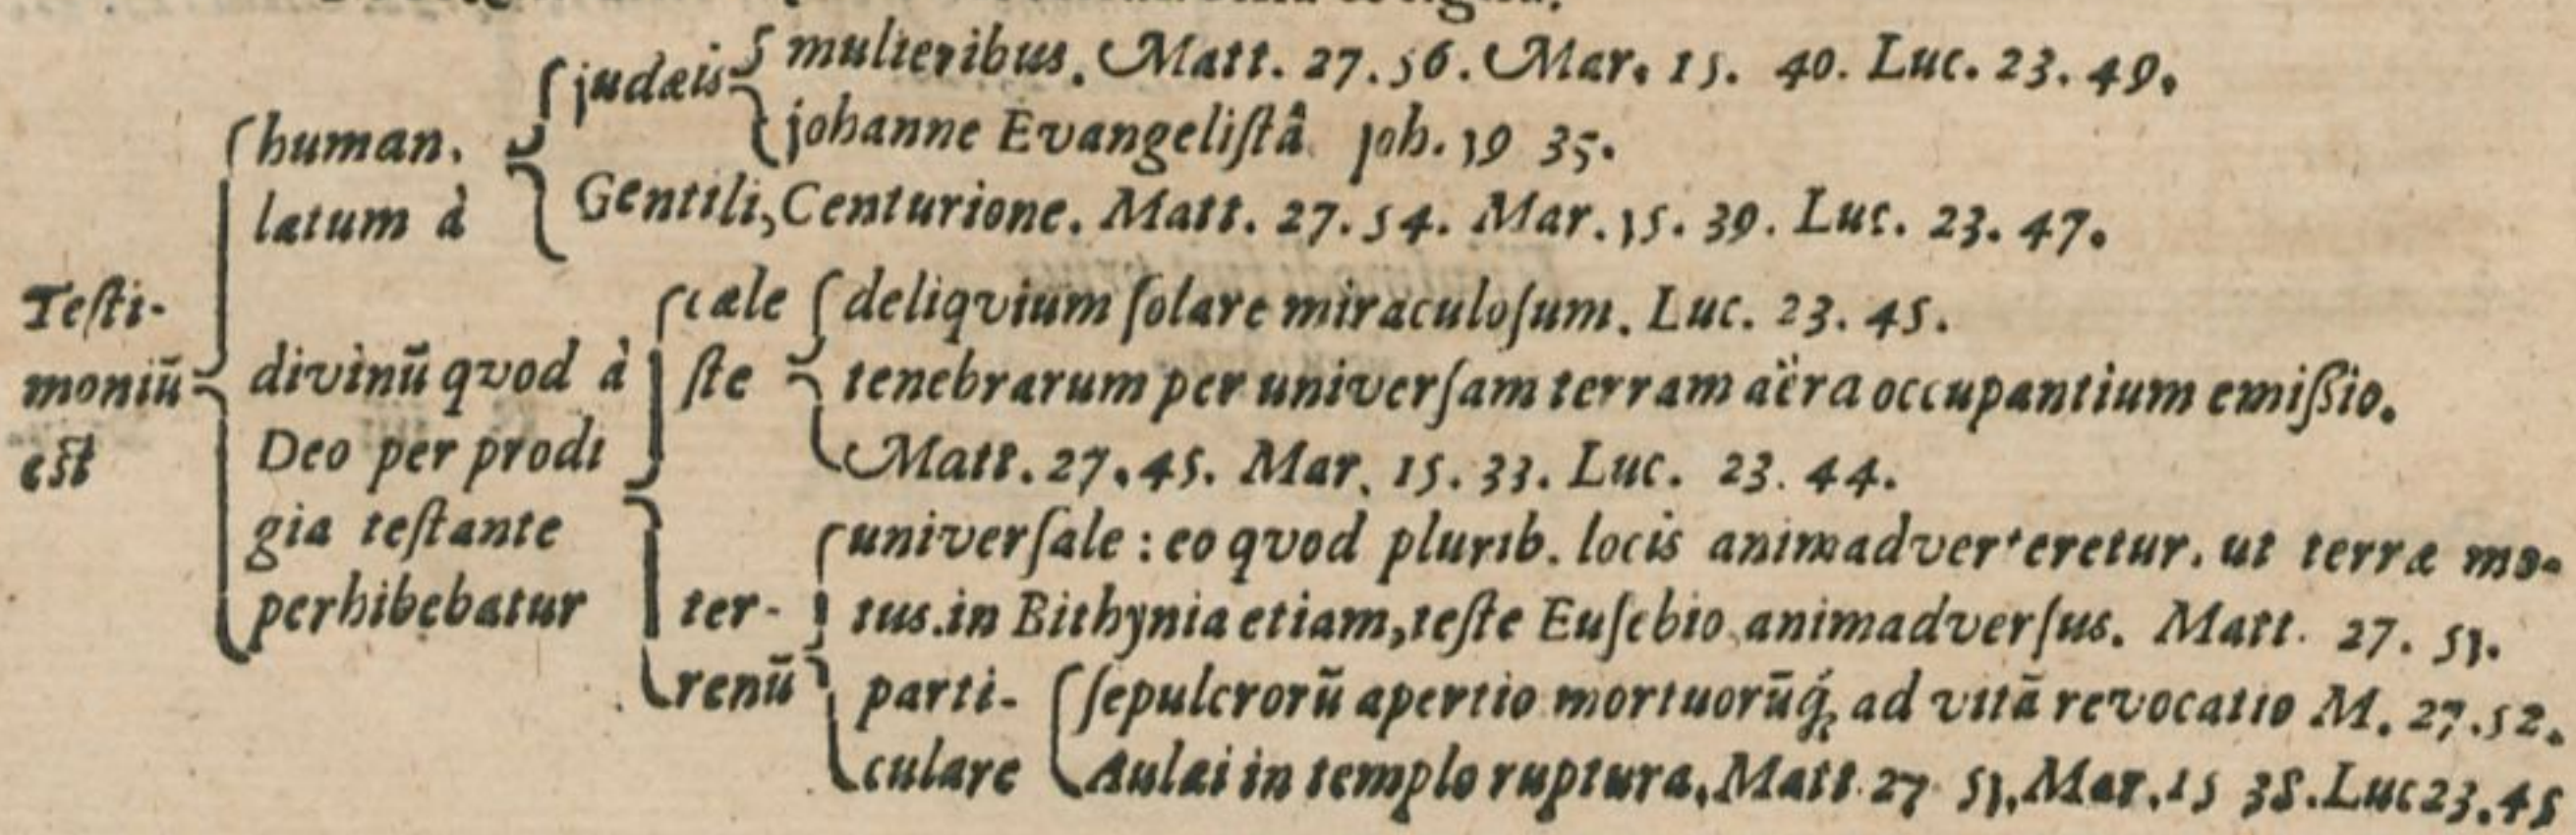 judæis
multeribus. Matt. 27. 56. Mar. 15. 40. Luc. 23. 49.
johanne Evangeliſtâ joh. 19 35.
human.
latum à
Gentili, Centurione. Matt. 27. 54. Mar. 15. 39. Luc. 23. 47.
Teſti-
moniū
eſt
divinū qvod à
Deo per prodi
gia teſtante
perhibebatur
cæle
ſte
deliqvium ſolare miraculoſum. Luc. 23. 45.
tenebrarum per univerſam terram aëra occupantium emiſſio.
Matt. 27. 45. Mar. 15. 33. Luc. 23. 44.
ter-
renū
univerſale : eo qvod plurib. locis animadverteretur. ut terræ mo-
tus. in Bithynia etiam, teſte Euſebio animadverſus. Matt. 27. 51.
parti-
culare
ſepulcrorū apertio mortuorūq́; ad vitā revocatio M. 27. 52.
Aulæi in templo ruptura, Matt. 27 51, Mar. 15 38. Luc 23. 45